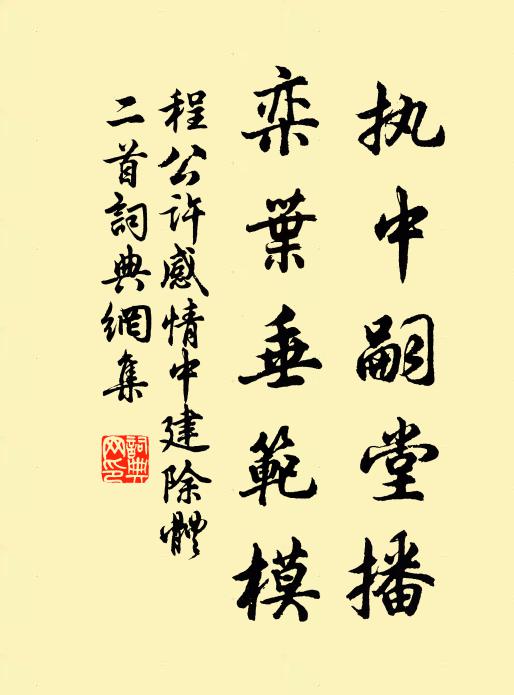 执中嗣堂播
奕葉垂範模
程公许感情中建除體
二首詞典網集
詞典网印